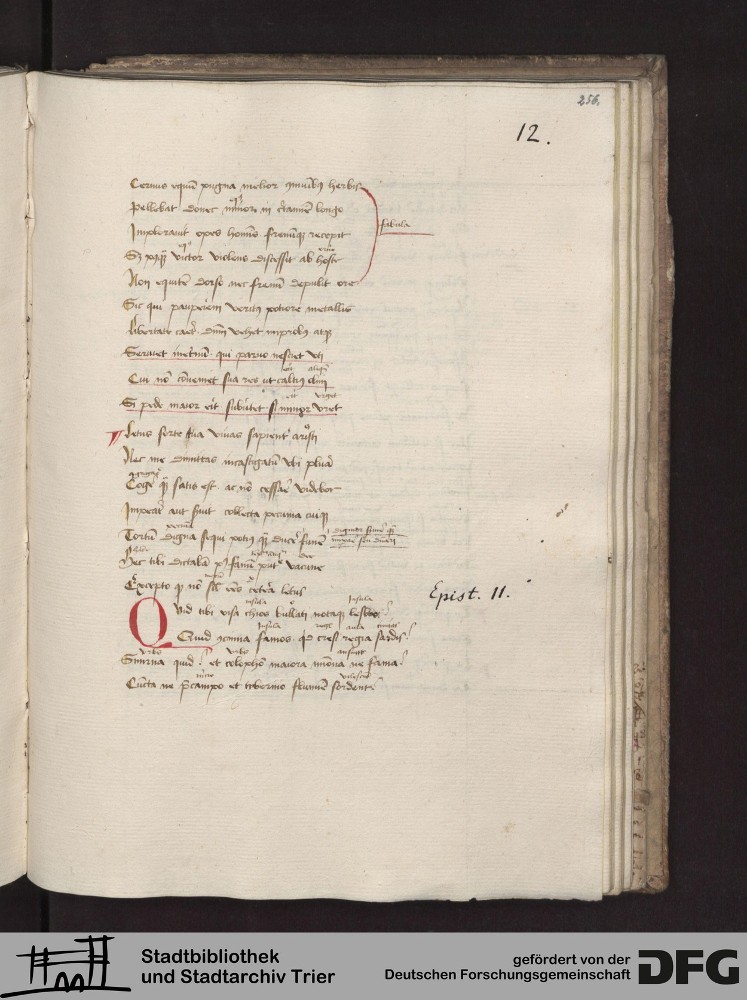 256.
12.
Cervus equum pugna melior communibus herbis
Pellebat donec minor in certamine longo
Imploravit opes hominis frenumque recepit
fabula
Sed postquam victor violens discessit ab hoste
Non equitem dorso nec frenum depulit ore
Sic qui pauperiem veritus potiore metallis
libertate caret dominum vehet improbus atque
Serviet eternum qui parvo nesciet uti
Cui non conveniet sua res ut calcius olim
Si pede maior erit subvertet si minor uret
letus sorte tua vives sapienter aristi
Nec me dimittas incastigatum ubi plura
Cogere quam satis est ac non cessare videbor
Imperat aut servit collecta pecunia cuique
Tortum digna sequi potius quam ducere funem
Hec tibi dictabam post fanum putre vacune
Excepto quod non simul esses cetera letus
Epist. 11.
Quid tibi visa chios bullati notaque lesbos
Quid concinna samos quid cresi regia sardis
Smirna quid et colophon maiora minora ne fama
Cuncta ne pre campo et tiberino flumine sordent
Stadtbibliothek
und Stadtarchiv Trier
gefördert von der
Deutschen Forschungsgemeinschaft
DFG